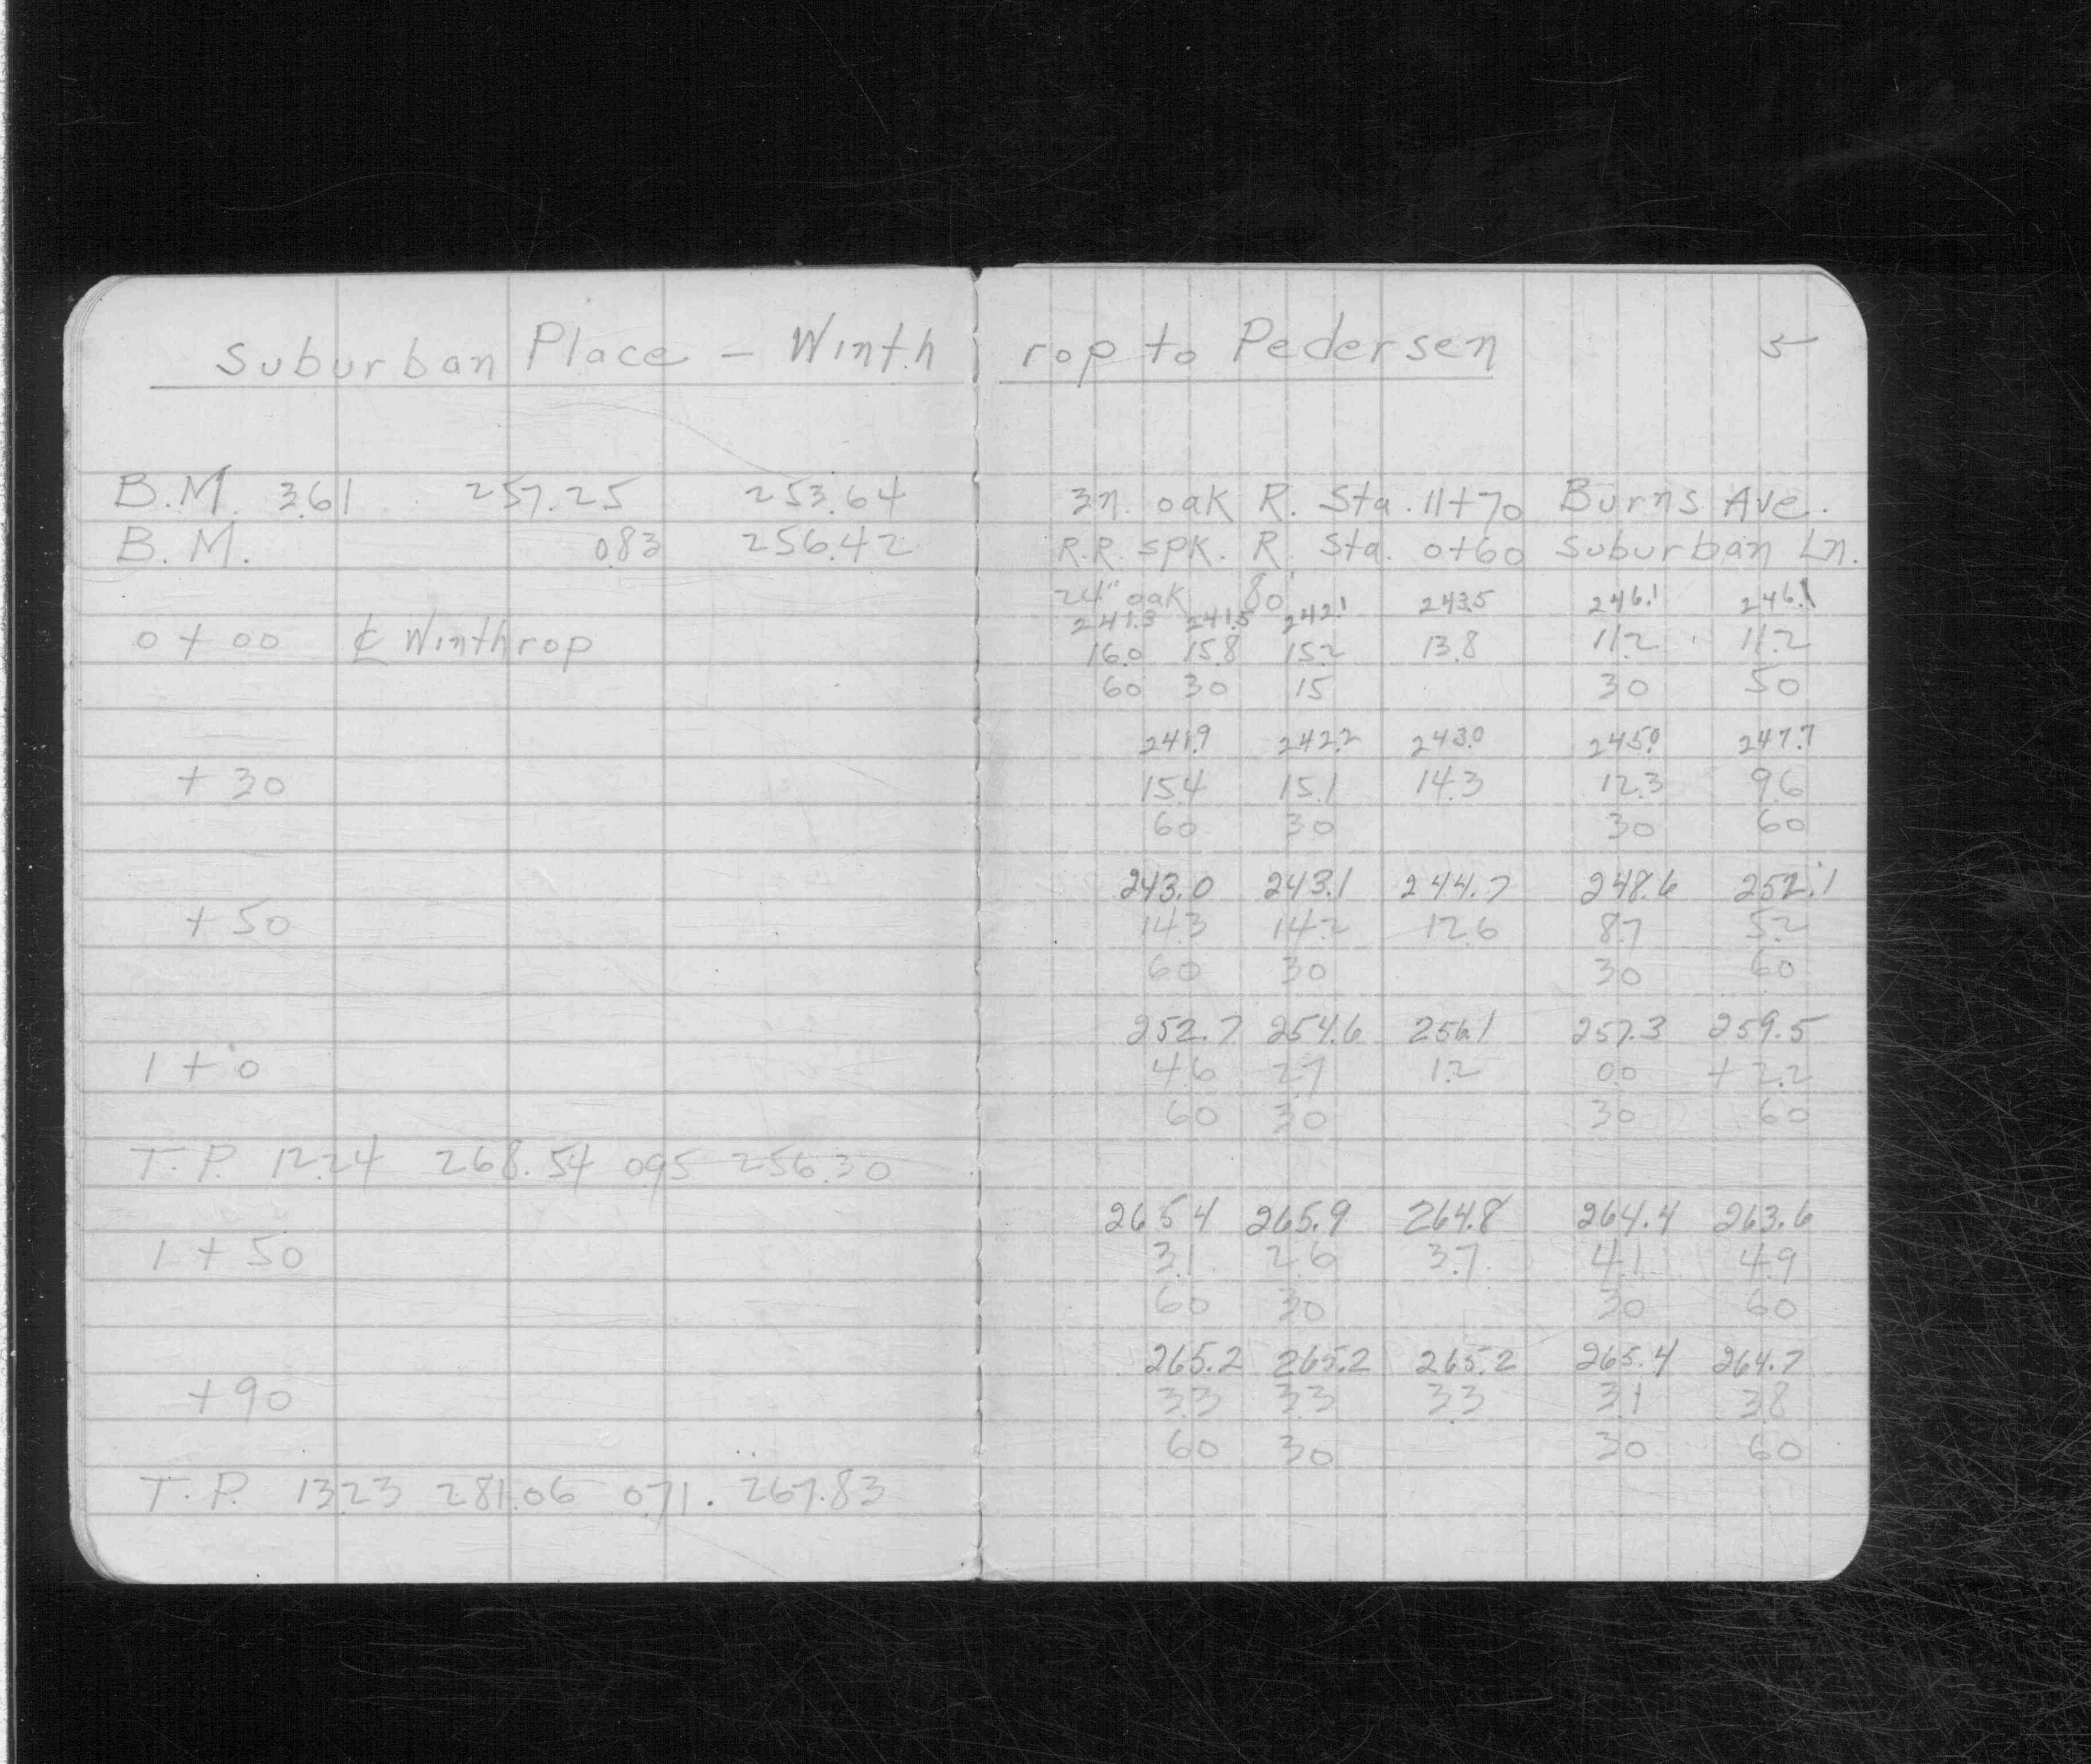 Suburban Place - Winthrop to Pedersen 5
B.M. 3.61 257.25 253.64 3n. oak R. Sta. 11+70 Burns Ave.
B.M. 0.83 256.42 R.R. spk. R. Sta. 0+60 Suburban Ln.
24" oak 80'
241.3 241.5 242.1 243.5 246.1 246.1
0+00 ℄ Winthrop 16.0 15.8 15.2 13.8 11.2 11.2
60 30 15 30 50
241.9 242.2 243.0 245.0 247.7
+30 15.4 15.1 14.3 12.3 9.6
60 30 30 60
243.0 243.1 244.7 248.6 252.1
+50 14.3 14.2 12.6 8.7 5.2
60 30 30 60
252.7 254.6 256.1 257.3 259.5
1+0 4.6 2.7 1.2 0.0 +2.2
60 30 30 60
T.P. 12.24 268.54 0.95 256.30
265.4 265.9 264.8 264.4 263.6
1+50 3.1 2.6 3.7 4.1 4.9
60 30 30 60
265.2 265.2 265.2 265.4 264.7
+90 3.3 3.3 3.3 3.1 3.8
60 30 30 60
T.P. 13.23 281.06 0.71 267.83